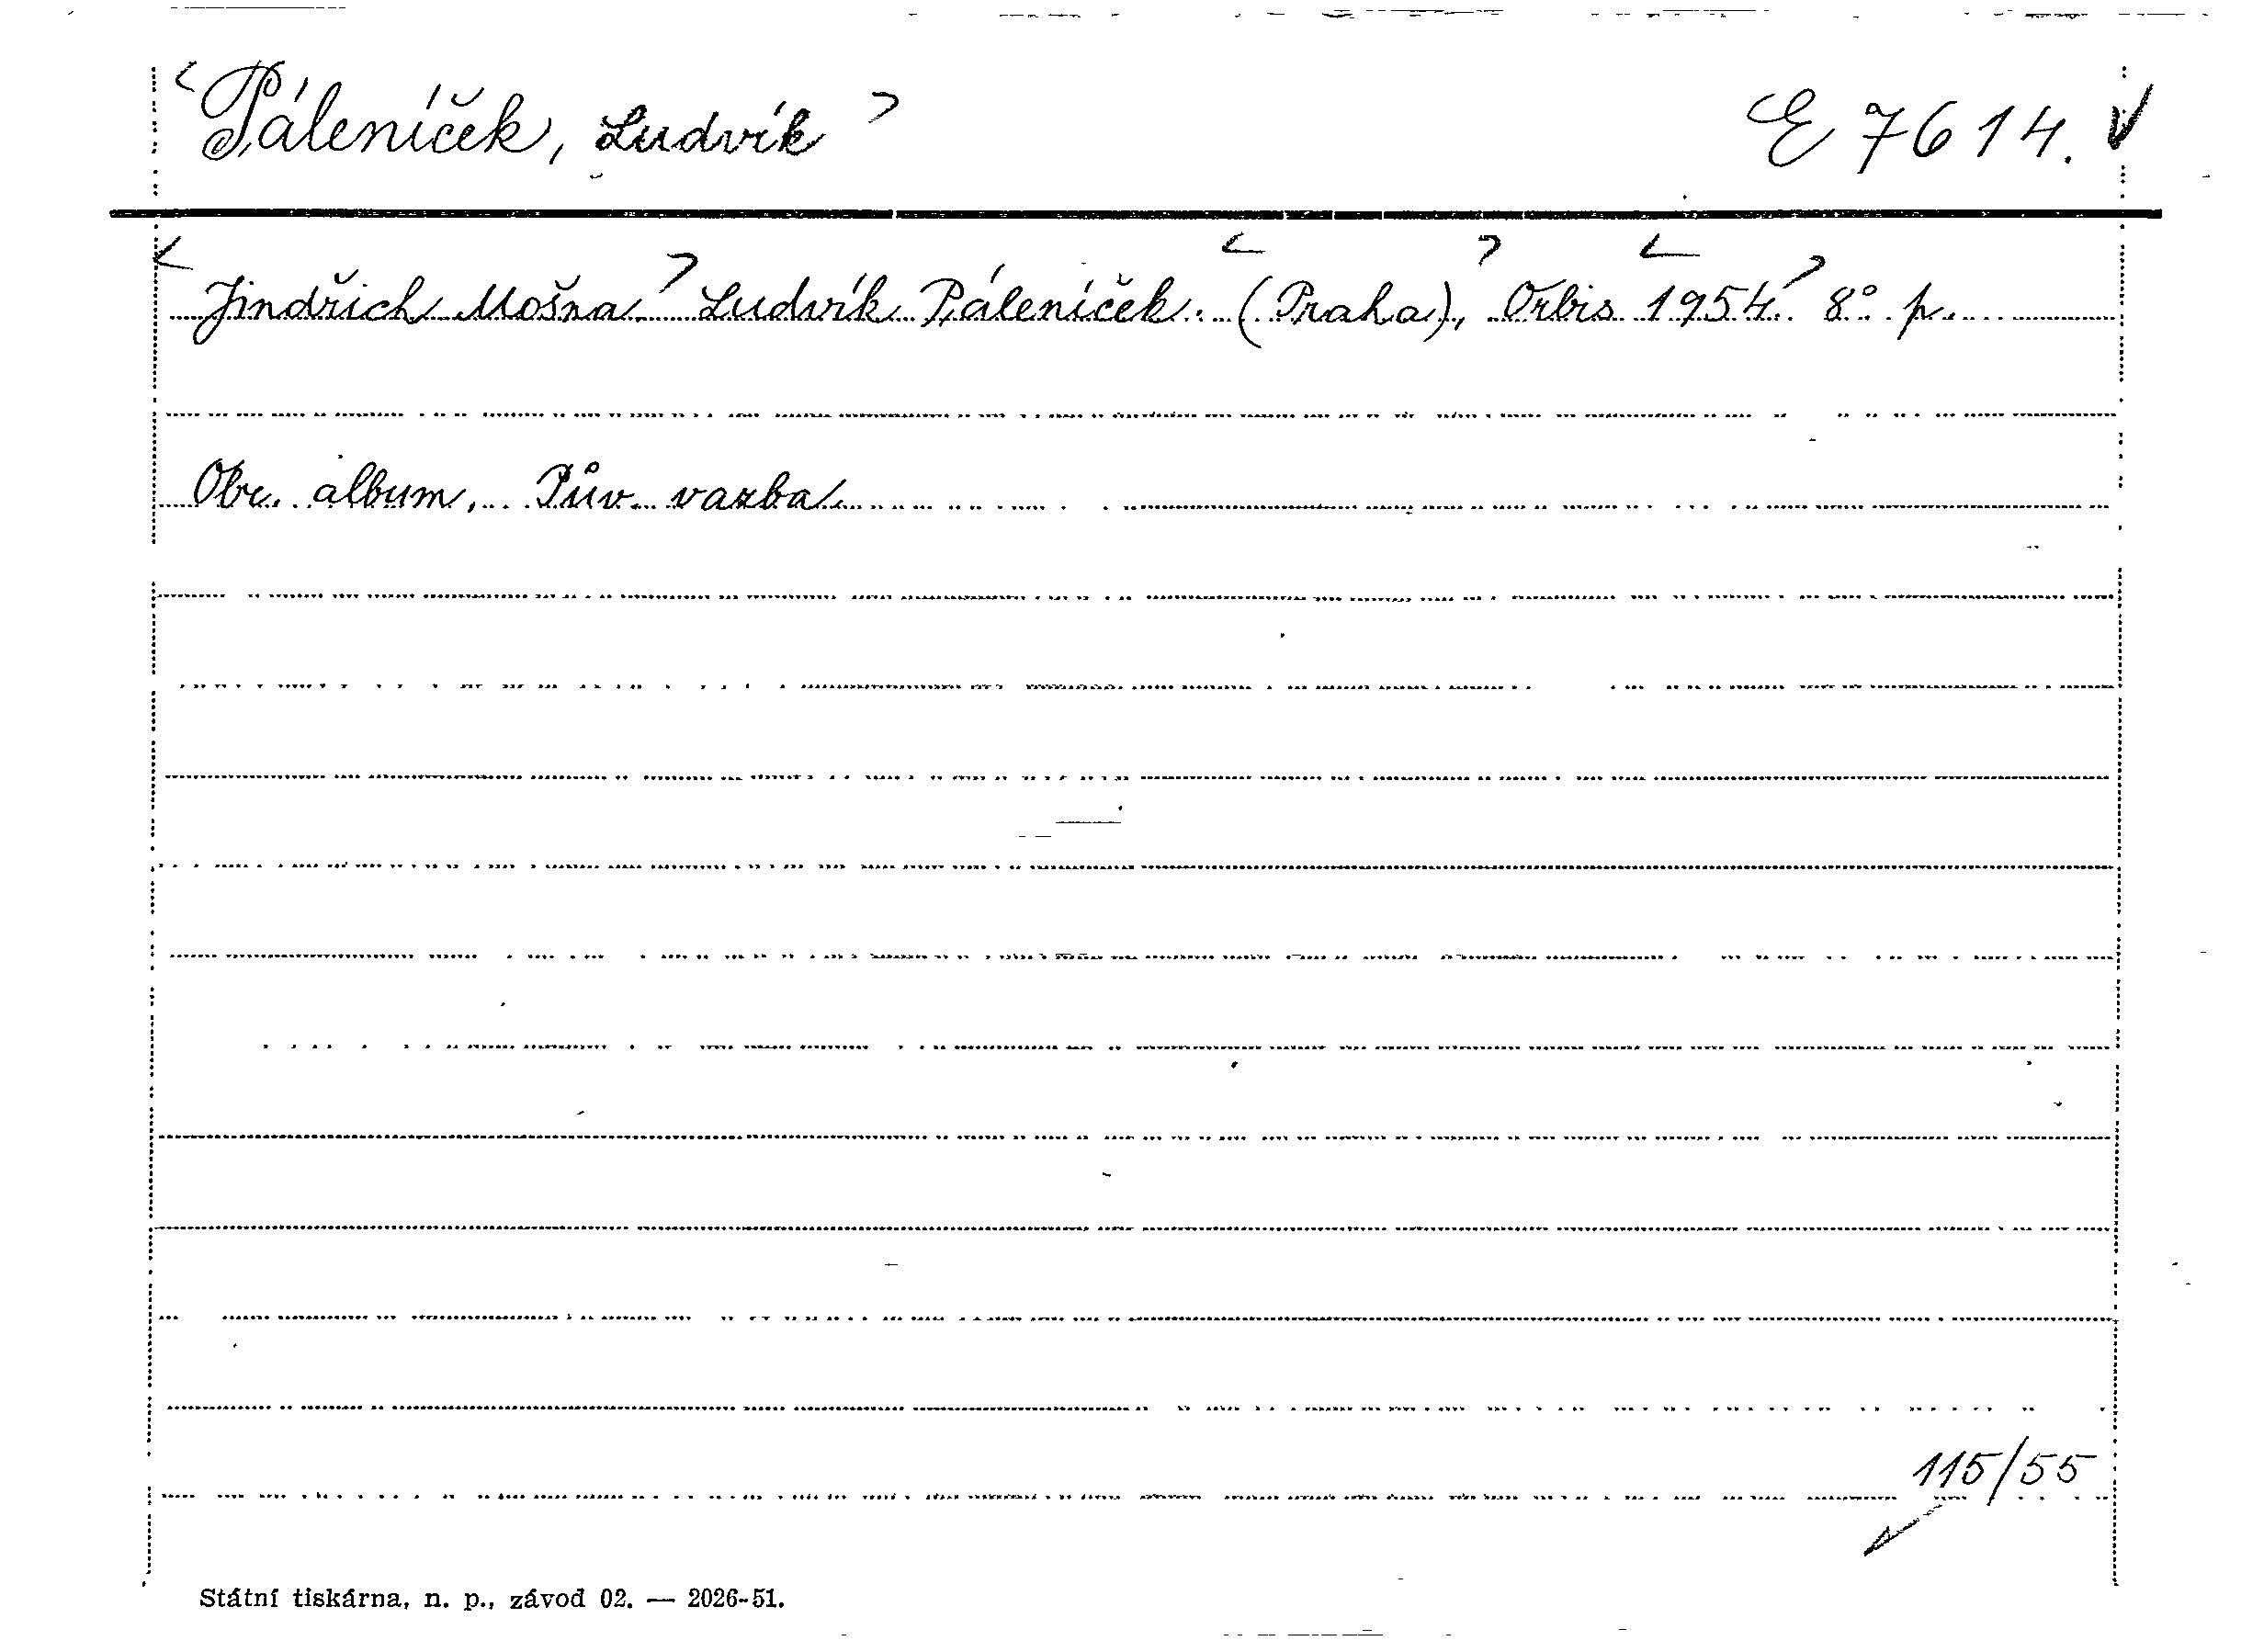 <Páleníček, Ludvík> E 7614. √
<Jindřich Mošna.> Ludvík Páleníček. <(Praha),> Orbis <1954.> 8° p.
Obr. album. Pův. vazba.
115/55
Státní tiskárna, n. p., závod 02. — 2026-51.